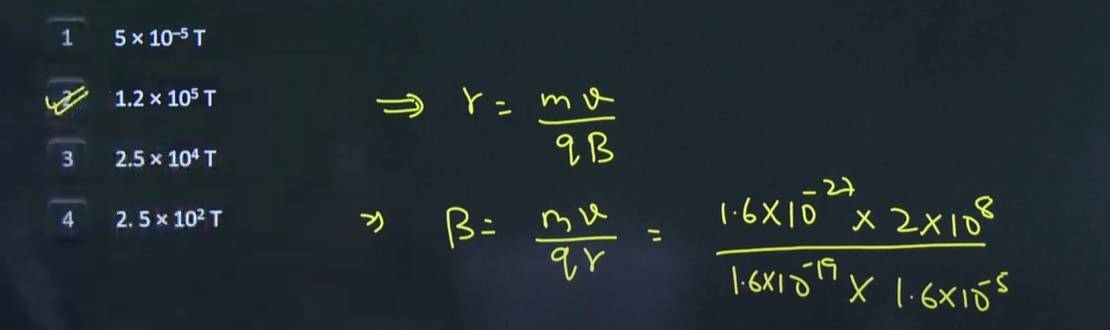 1 5 × 10⁻⁵ T
2 1.2 × 10⁵ T
3 2.5 × 10⁴ T
4 2. 5 × 10² T
⇒ r = mv / qB
⇒ B = mv / qr = 1.6×10⁻²⁷ × 2×10⁸ / 1.6×10⁻¹⁹ × 1.6×10⁻⁵